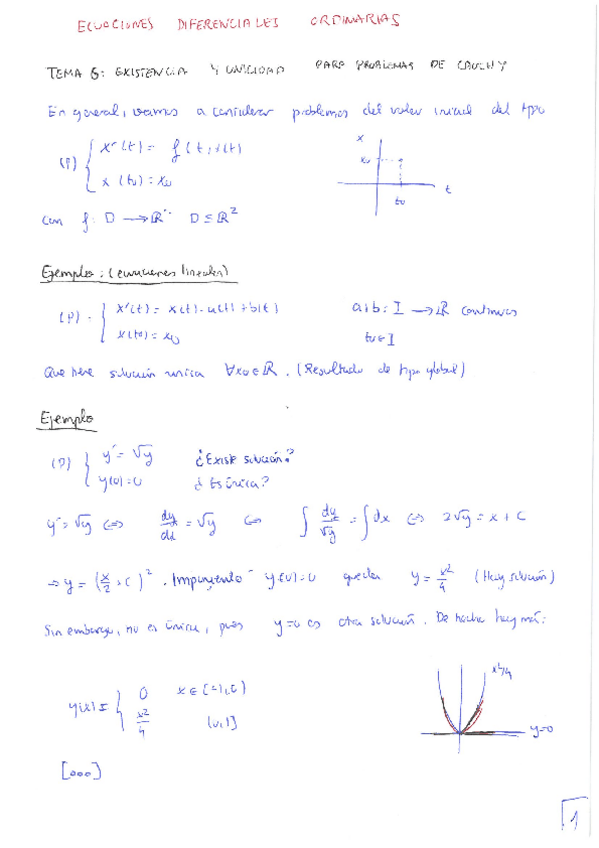 ECUACIONES DIFERENCIALES ORDINARIAS
TEMA 6: EXISTENCIA Y UNICIDAD PARA PROBLEMAS DE CAUCHY
En general, vamos a considerar problemas del valor inicial del tipo
(P) { x'(t) = f(t, x(t)
x(t0) = x0
x
x0
t0
t
con f: D → R D ⊆ R²
Ejemplo: (ecuaciones lineales)
(P) = { x'(t) = x(t)·a(t) + b(t)
x(t0) = x0
a, b: I → R continuas
t0 ∈ I
Que tiene solución única ∀x0 ∈ R. (Resultado de tipo global)
Ejemplo
(P) { y' = √y
y(0) = 0
¿Existe solución?
¿Es única?
y' = √y ⇔ dy/dx = √y ⇔ ∫ dy/√y = ∫ dx ⇔ 2√y = x + C
⇒ y = (x/2 + C)². Imponiendo y(0) = 0 queda y = x²/4 (Hay solución)
Sin embargo, no es única, pues y = 0 es otra solución. De hecho hay más:
y(x) = { 0 x ∈ [-1, 0)
x²/4 [0, 1]
x²/4
y=0
[ooo]
1